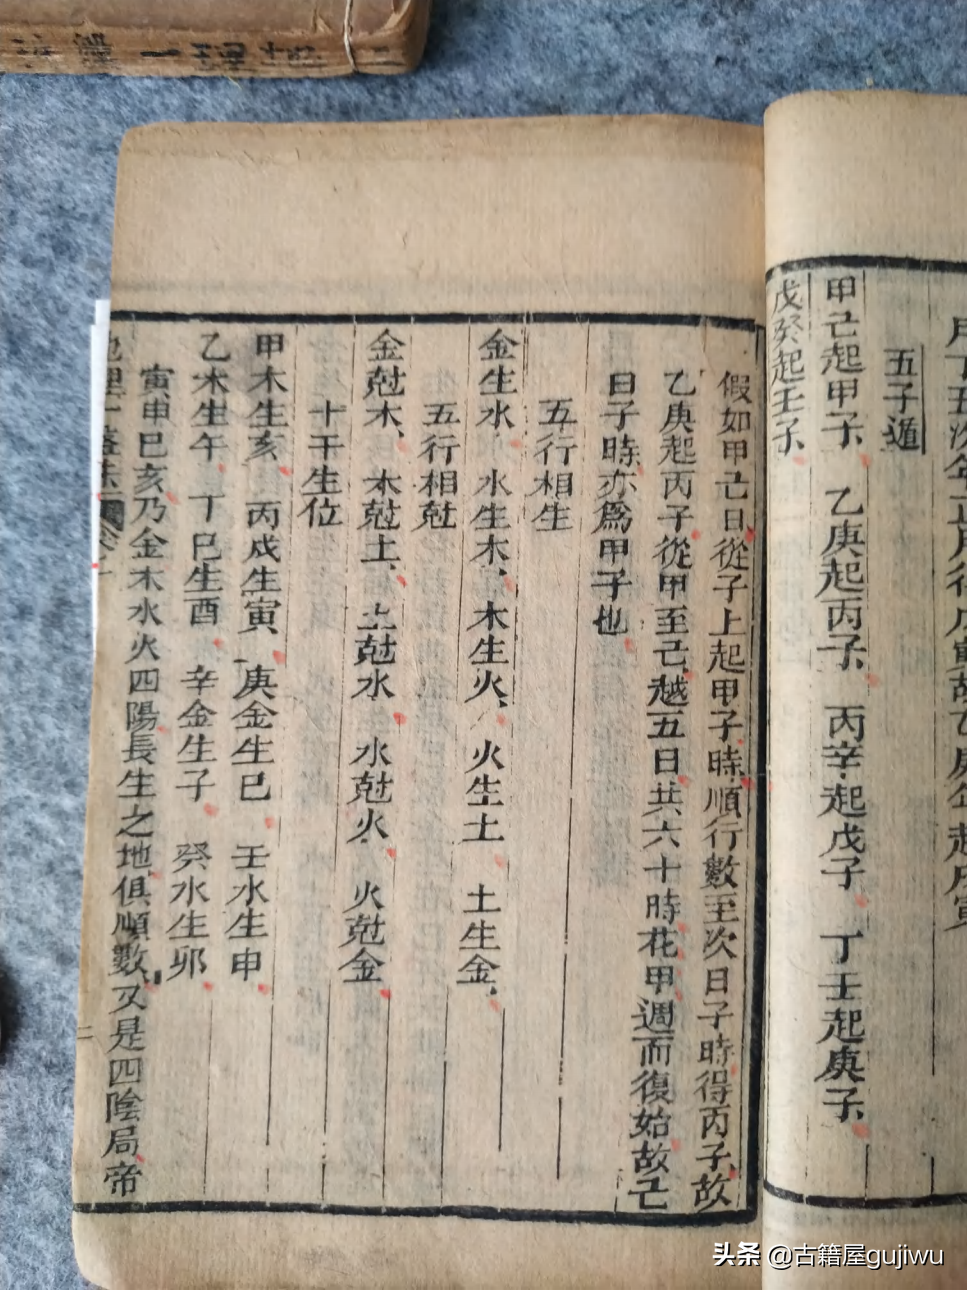 五子遁
甲己起甲子 乙庚起丙子 丙辛起戊子 丁壬起庚子
戊癸起壬子
假如甲己日從子上起甲子時順行數至次日子時得丙子故
乙庚起丙子從甲至己越五日共六十時花甲週而復始故己
日子時亦爲甲子也
五行相生
金生水 水生木 木生火 火生土 土生金
五行相尅
金尅木 木尅土 土尅水 水尅火 火尅金
十干生位
甲木生亥 丙戊生寅 庚金生巳 壬水生申
乙木生午 丁巳生酉 辛金生子 癸水生卯
寅申巳亥乃金木水火四陽長生之地俱順數又是四陰局帝
頭条 @古籍屋gujiwu